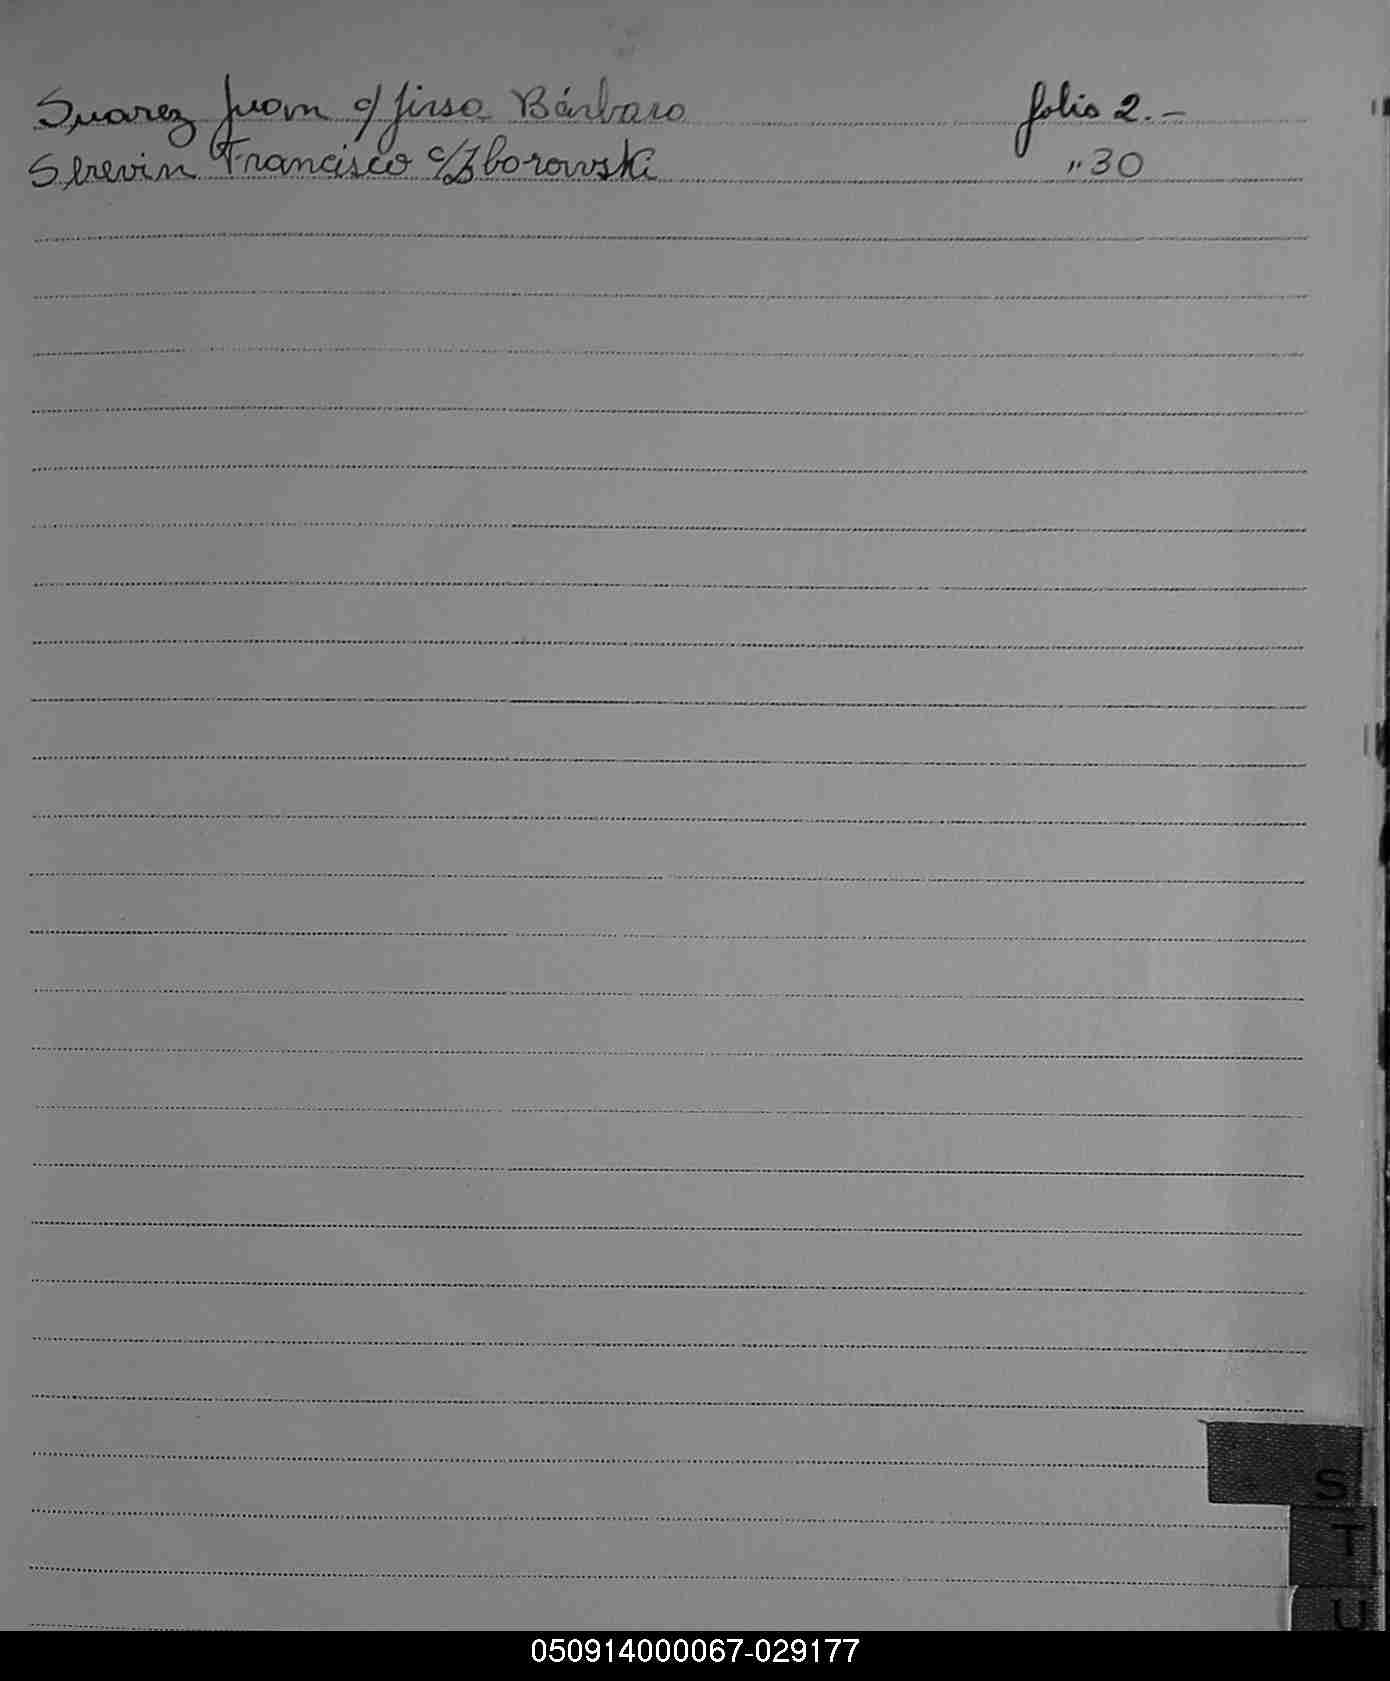 Suarez Juan c/ Jirsa Bárbara folio 2.-
Slrevin Francisco c/Zborowski " 30
S
T
U
050914000067-029177